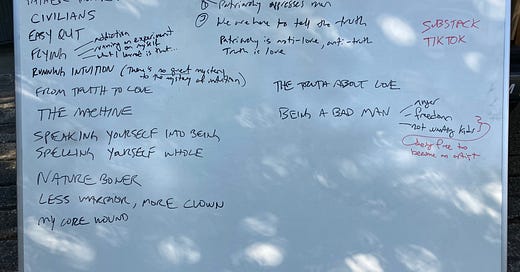 CIVILIANS
EASY QUIT
FLYING
running an experiment
on myself
what I learned is that...
RUNNING INTUITION (There is no great mystery
to the mystery of intuition)
FROM TRUTH TO LOVE
THE MACHINE
SPEAKING YOURSELF INTO BEING
SPELLING YOURSELF WHOLE
NATURE BONER
LESS WARRIOR, MORE CLOWN
MY CORE WOUND
Patriarchy oppresses men
② We are here to tell the truth
Patriarchy is anti-love, anti-truth
Truth is love
THE TRUTH ABOUT LOVE
BEING A BAD MAN
anger
freedom
not wanting kids
being free to
become an artist
SUBSTACK
TIKTOK